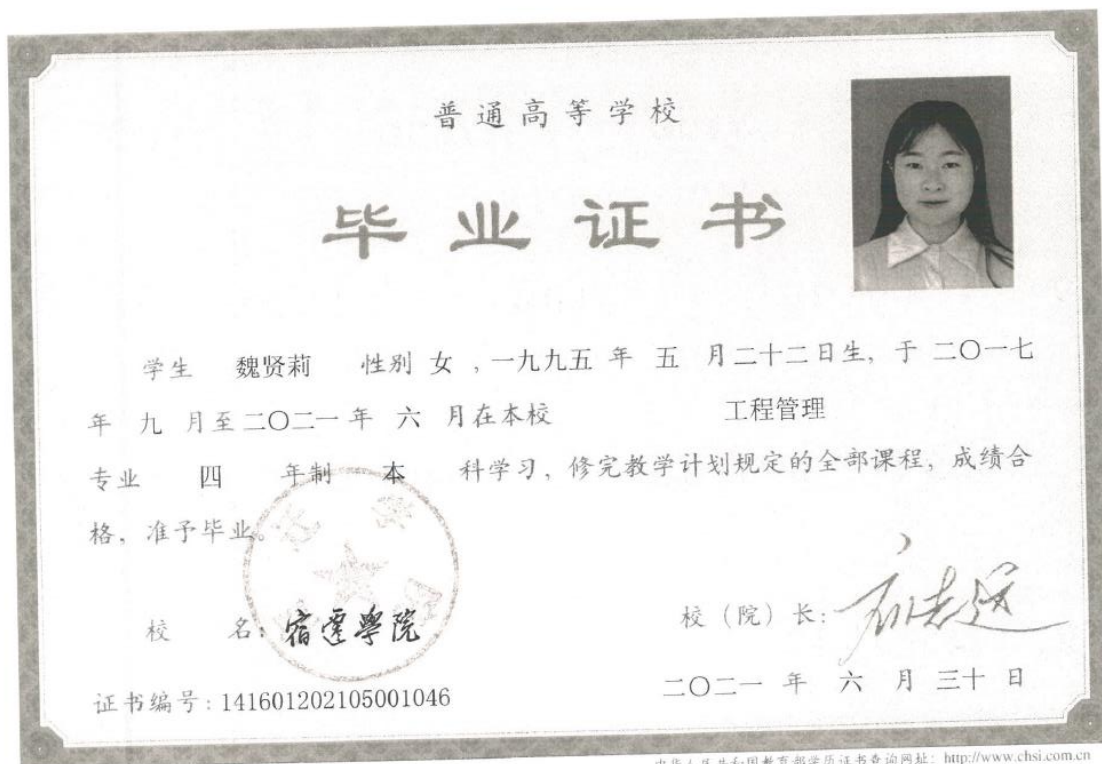 普通高等学校
毕业证书
学生 魏贤莉 性别 女 ,一九九五 年 五 月二十二日生, 于 二〇一七
年 九 月至二〇二一年 六 月在本校 工程管理
专业 四 年制 本 科学习, 修完教学计划规定的全部课程, 成绩合
格, 准予毕业。
校 名: 宿迁學院
校（院）长:
证书编号: 141601202105001046
二〇二一 年 六 月 三十 日
中华人民共和国教育部学历证书查询网址: http://www.chsi.com.cn